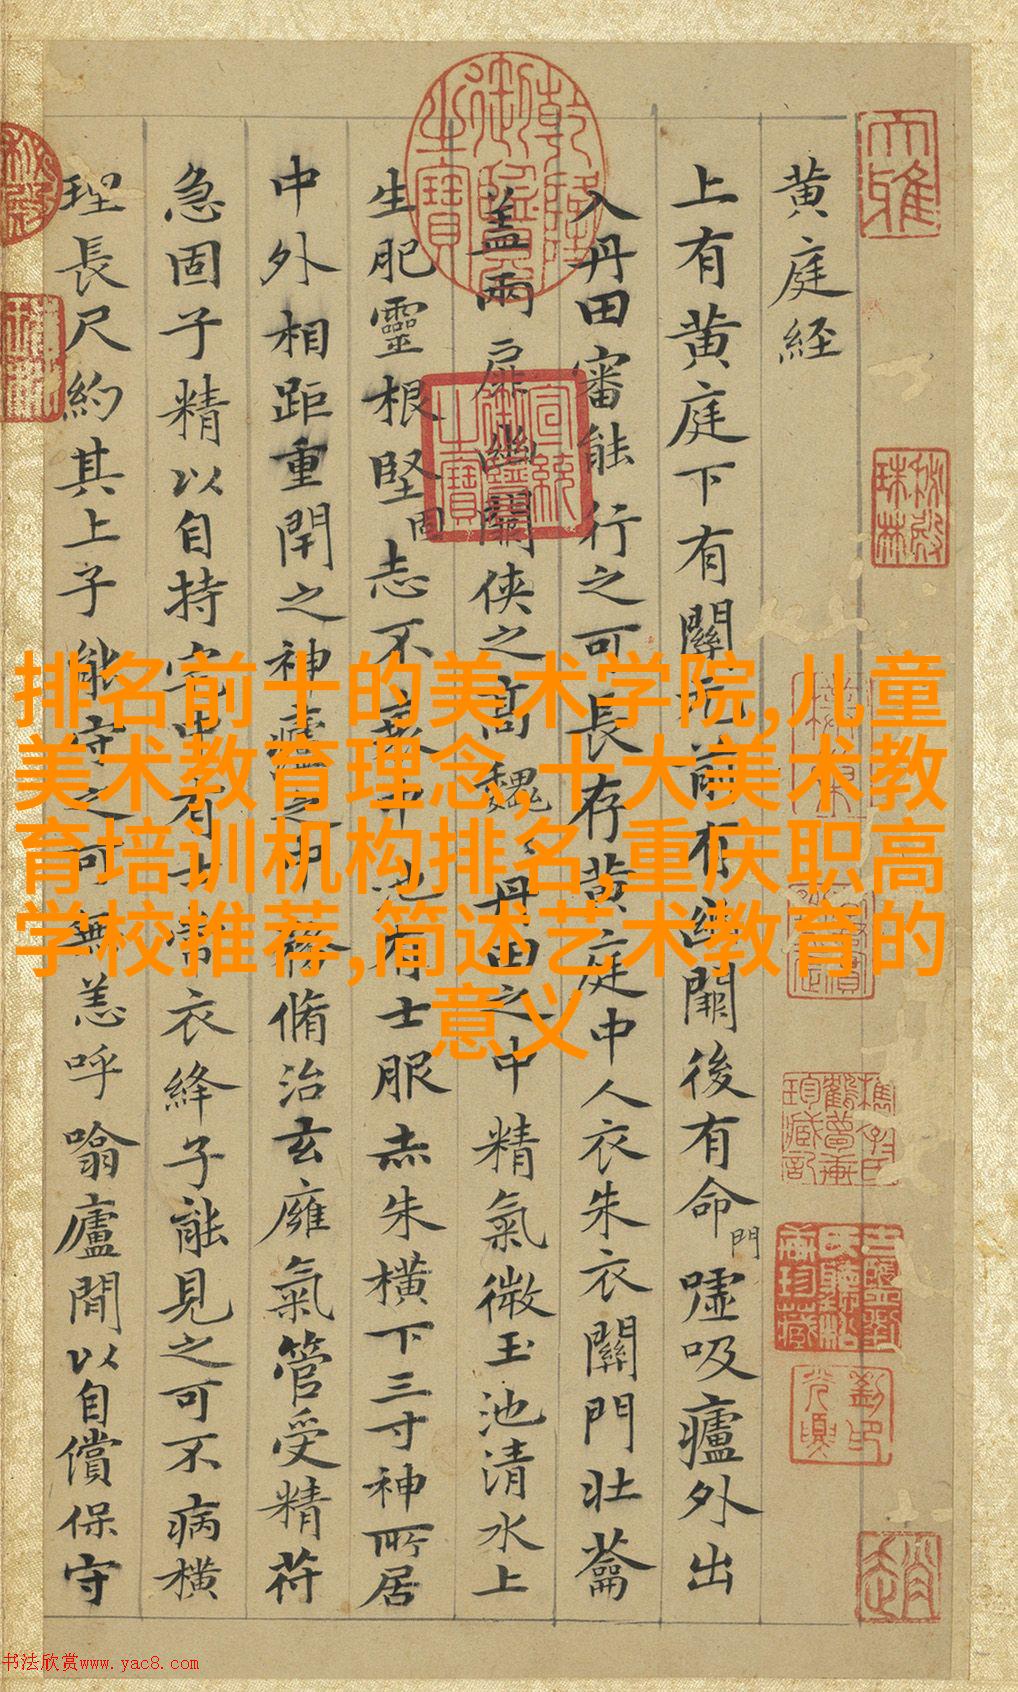 黄庭経
上有黄庭下有關元前有幽闕後有命門嘘吸廬外出
入丹田審能行之可長存黄庭中人衣朱衣關門壮蘥
盖兩扉幽闕侠之高巍丹田之中精氣微玉池清水上
生肥靈根堅固志不衰中池有士服赤朱横下三寸神所居
中外相距重閇之神廬之中務脩治玄癰氣管受精苻
急固子精以自持宅中有士常衣絳子能見之可不病横
理長尺約其上子能守之可無恙呼噏廬間以自償保守
大雅
乾隆御覽之寶
宣統御覽之寶
排名前十的美术学院,儿童
美术教育理念,十大美术教
育培训机构排名,重庆职高
学校推荐,简述艺术教育的
意义
书法欣赏www.yac8.com